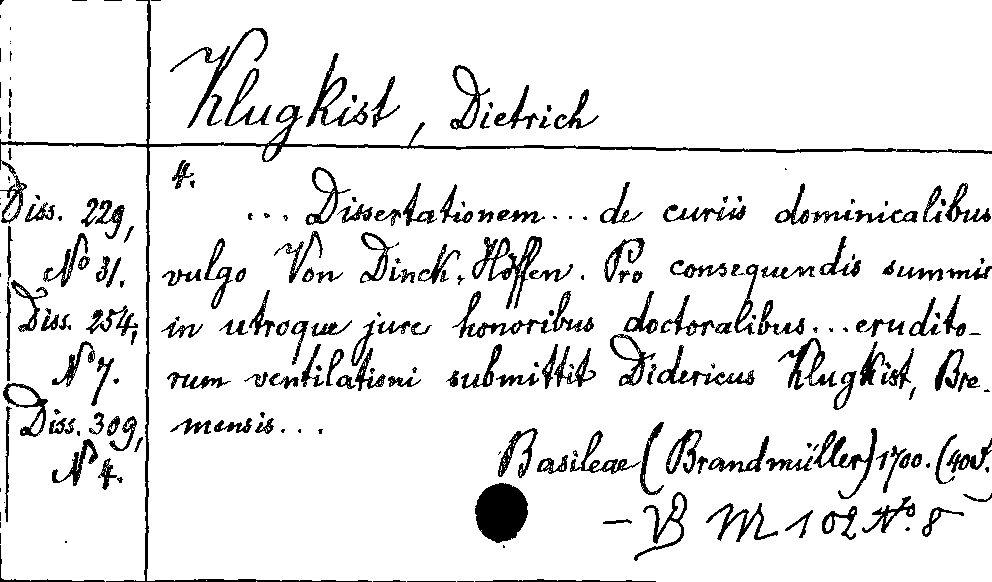 Klugkist, Dietrich
Diss. 229,
No 31.
Diss. 254,
No 7.
Diss. 309,
No 4.
4.
... Dissertationem ... de curiis dominicalibus
vulgo Von Dinck-Höffen. Pro consequendis summis
in utroque jure honoribus doctoralibus ... erudito-
rum ventilationi submittit Didericus Klugkist, Bre-
mensis ...
Basileae (Brandmüller) 1700. (40 S.
– VB M 102 No. 8